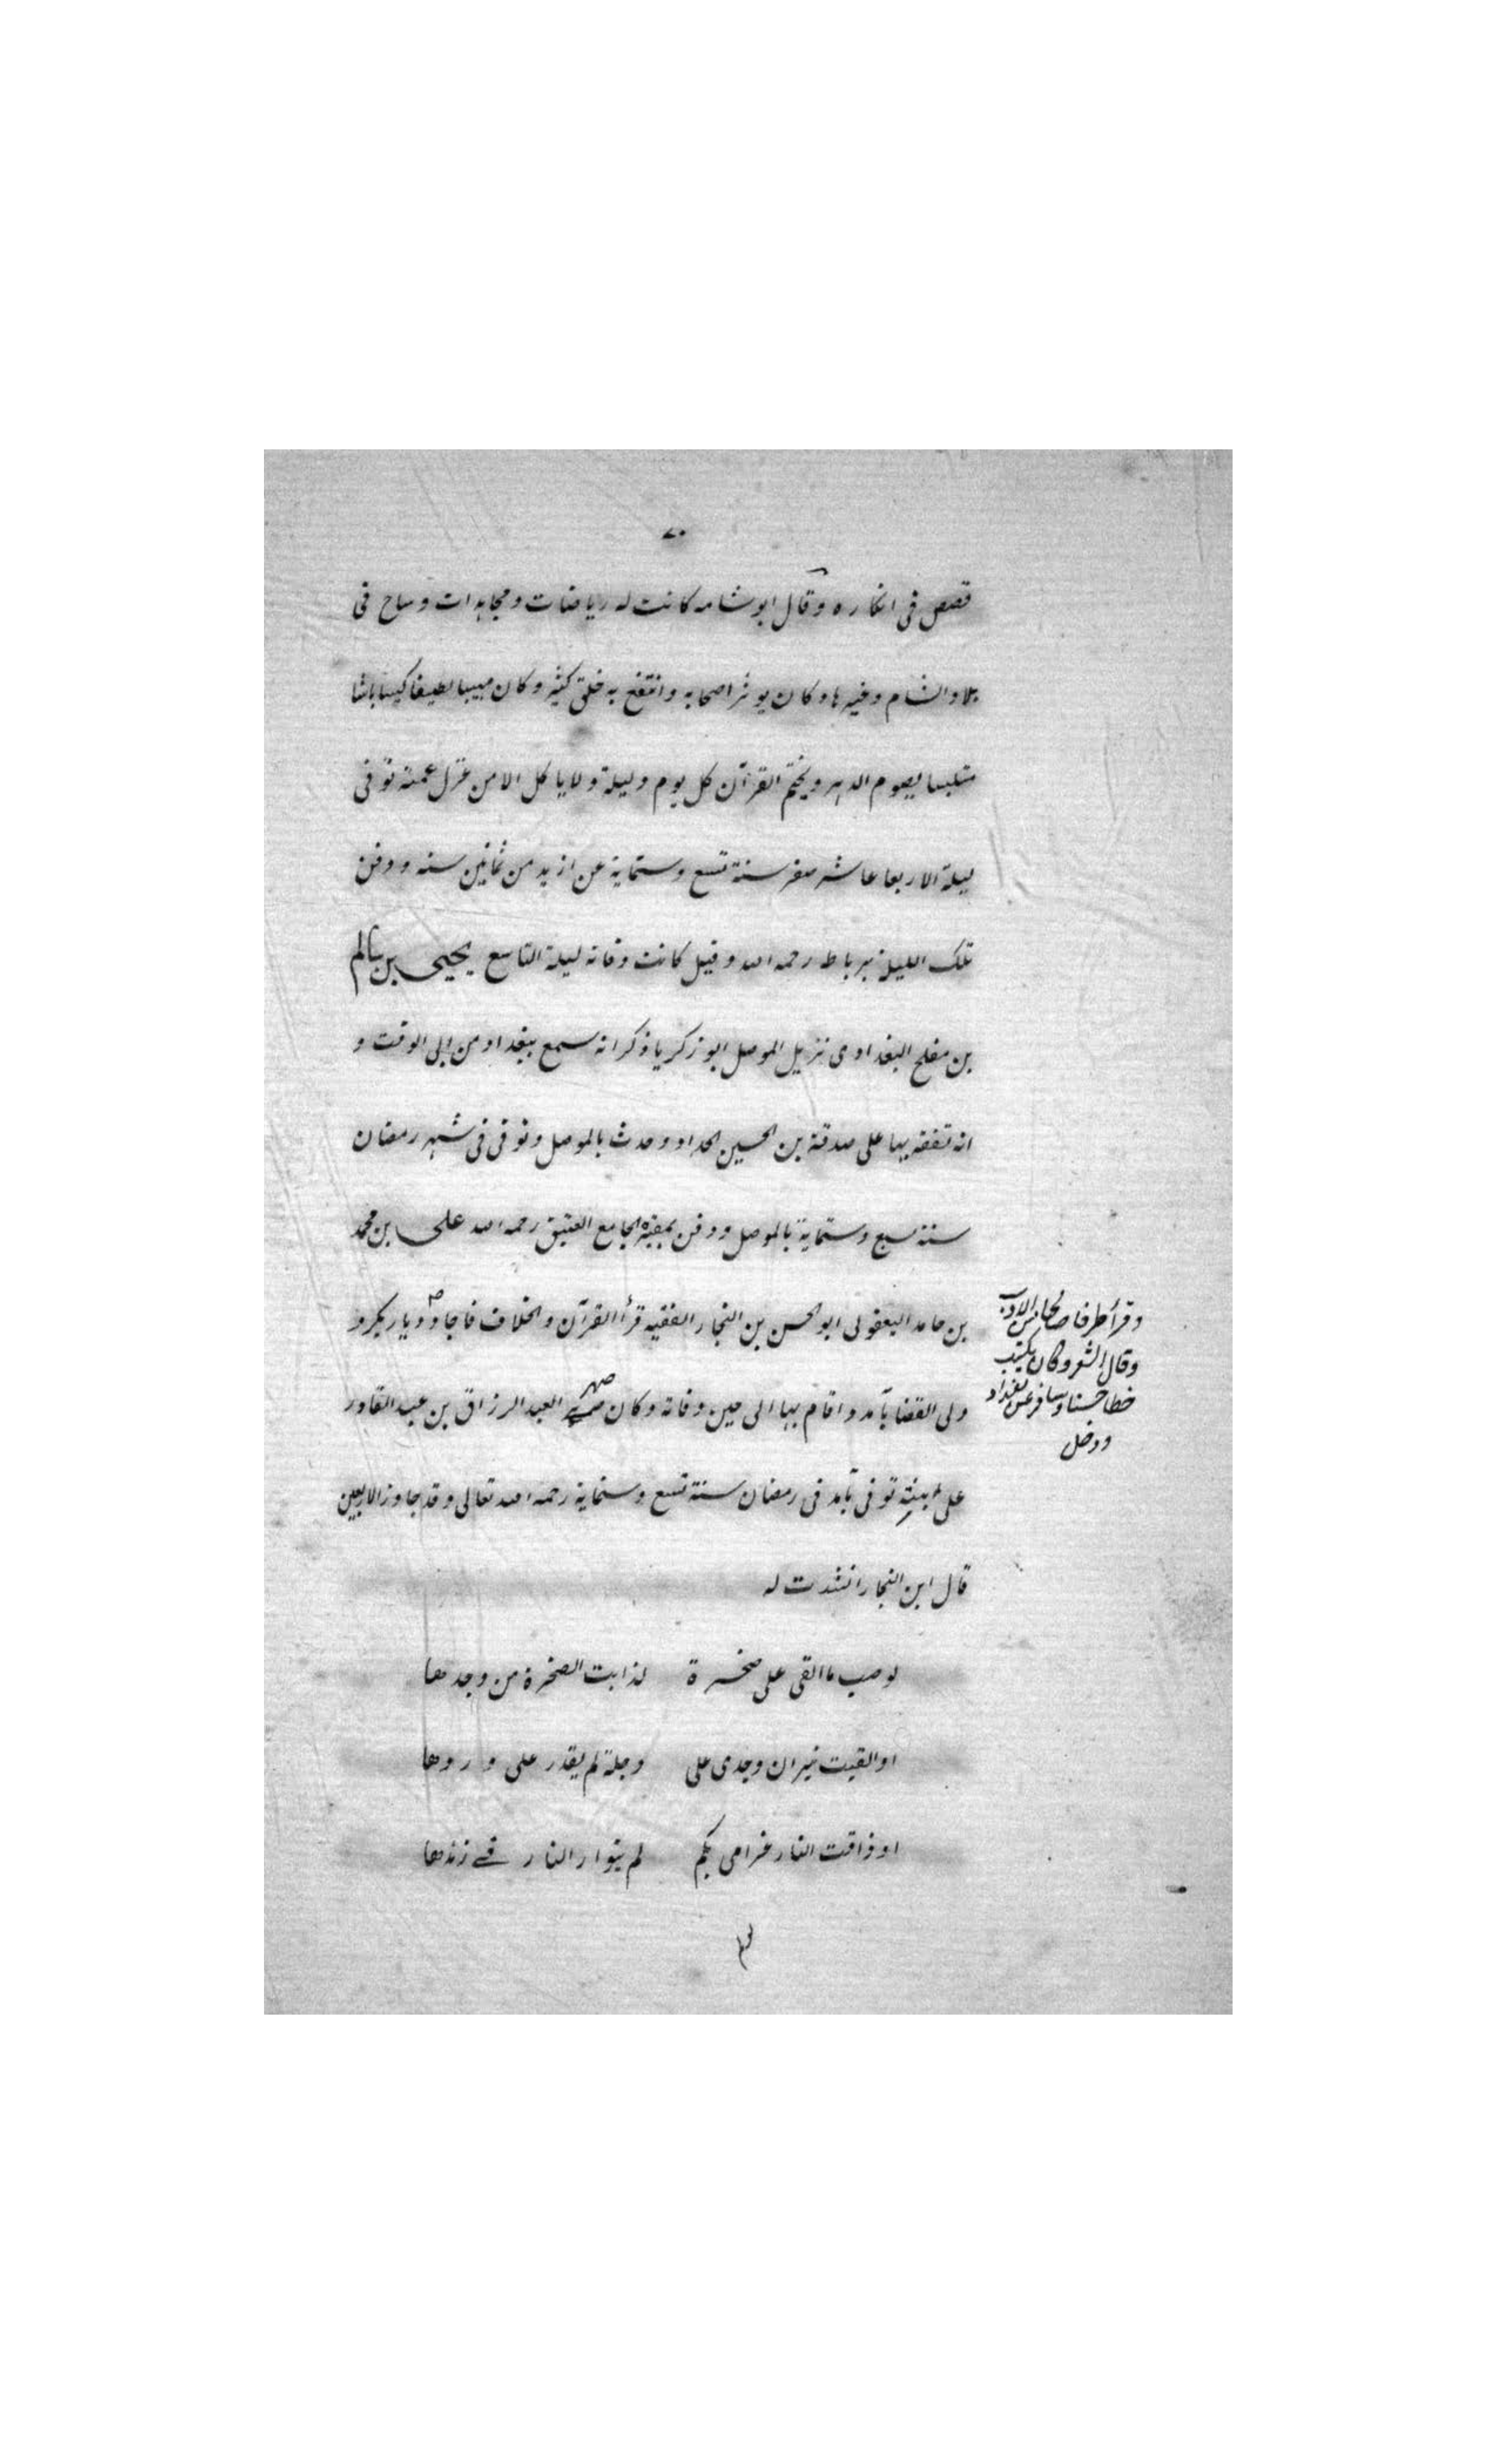 ٧٠
قصص فى انكاره وقال ابو شامه كانت له رياضات ومجاهدات وساح فى
بلاد الشام وغيرها وكان يوثر اصحابه وانتفع به خلق كثير وكان مهيبا لطيفا كيسا باشا
متلبسا يصوم الدهر ويختم القرآن كل يوم وليلة ولا ياكل الا من غزل عمته توفى
ليلة الاربعا عاشر صفر سنة تسع وستماية عن ازيد من ثمانين سنه ودفن
تلك الليلة برباط رحمه الله وقيل كانت وفاته ليلة التاسع يحيى بن سالم
بن مفلح البغدادى نزيل الموصل ابو زكريا ذكر انه سمع ببغداد من ابى الوقت و
انه تفقه بها على صدقة بن الحسين الحداد وحدث بالموصل وتوفى فى شهر رمضان
سنة سبع وستماية بالموصل ودفن بمقبرة الجامع العتيق رحمه الله على بن محمد
بن حامد اليعقولى ابو الحسن بن النجار الفقيه قرأ القرآن والخلاف فاجاد وديار بكر و
وقرأ طرفا صالحا من الادب
وقال الشعر وكان يكتب
خطا حسنا وسافر عن بغداد
ودخل
ولى القضا بآمد واقام بها الى حين وفاته وكان صهر العبد الرزاق بن عبد القادر
على ابنته توفى بآمد فى رمضان سنة تسع وستماية رحمه الله تعالى وقد جاوز الاربعين
قال ابن النجار انشدت له
لو صب ما القى على صخرة لذابت الصخرة من وجدها
او القيت نيران وجدى على دجلة لم يقدر على وردها
او ذاقت النار غرامى بكم لم يتوار النار فى زندها